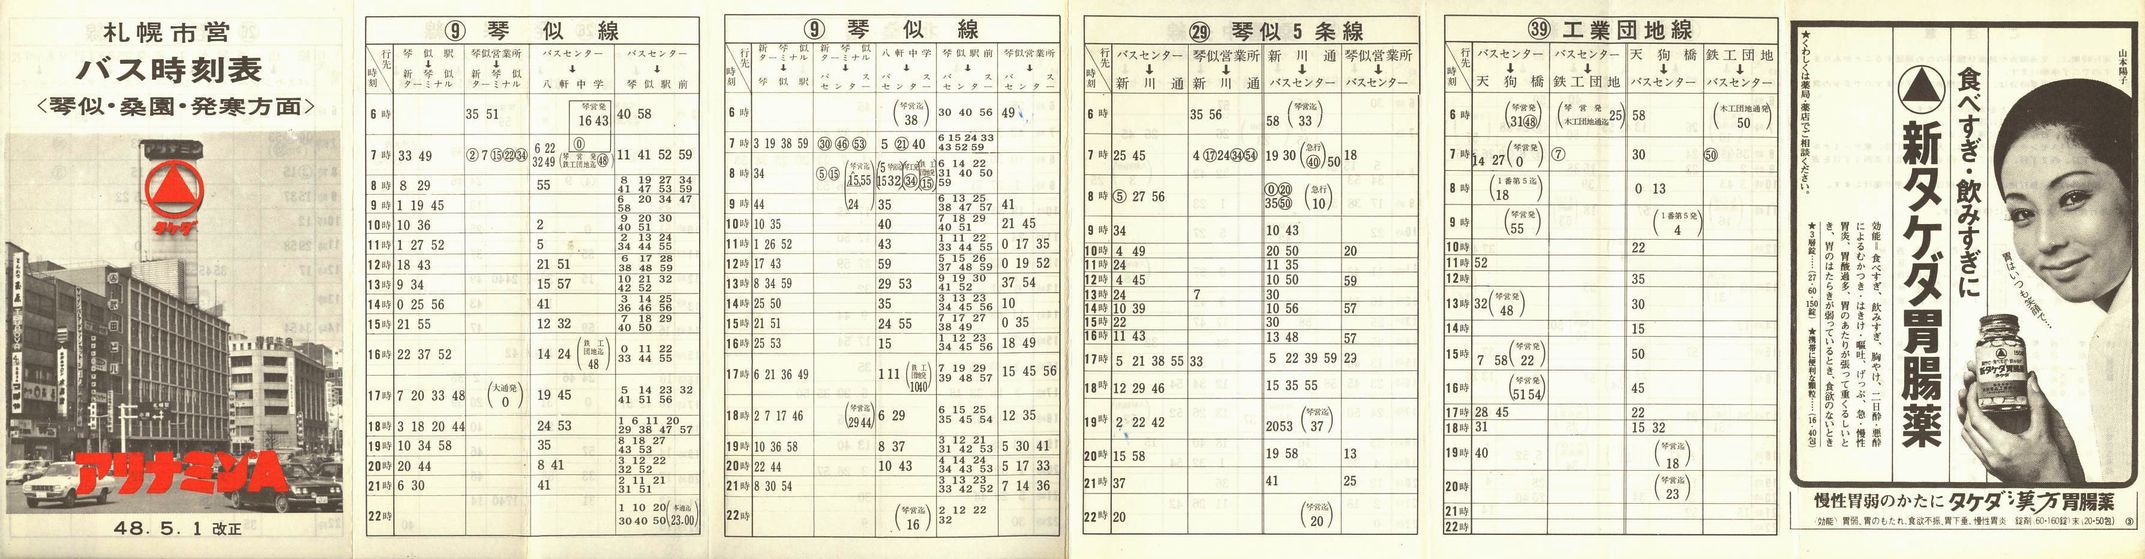 札幌市営
バス時刻表
<琴似・桑園・発寒方面>
アリナミン
タケダ
アリナミンA
48.5.1 改正
⑨ 琴似線
行先
時刻
琴似駅 ↓ 新琴似ターミナル
琴似営業所 ↓ 新琴似ターミナル
バスセンター ↓ 八軒中学
バスセンター ↓ 琴似駅前
6時 35 51 (琴営発 16 43) 40 58
7時 33 49 ② 7 ⑮㉒㉞ 6 22 ⓪ 32 49 (琴営発 鉄工団地迄 ㊽) 11 41 52 59
8時 8 29 55 8 19 27 34 41 47 53 59
9時 1 19 45 6 20 34 47 58
10時 10 36 2 9 20 30 40 51
11時 1 27 52 5 2 13 24 34 44 55
12時 18 43 21 51 6 17 28 38 48 59
13時 9 34 15 57 10 21 32 42 52
14時 0 25 56 41 3 14 25 36 46 56
15時 21 55 12 32 7 18 29 40 50
16時 22 37 52 14 24 (鉄工団地迄 48) 0 11 22 33 44 55
17時 7 20 33 48 (大通発 0) 19 45 5 14 23 32 41 51 56
18時 3 18 20 44 24 53 1 6 11 20 29 38 47 57
19時 10 34 58 35 8 18 27 43 53
20時 20 44 8 41 3 12 22 32 52
21時 6 30 41 2 11 21 31 51
22時 1 10 20 30 40 50 (本通迄 23.00)
⑨ 琴似線
行先
時刻
新琴似ターミナル ↓ 琴似駅
新琴似ターミナル ↓ バスセンター
八軒中学 ↓ バスセンター
琴似駅前 ↓ バスセンター
琴似営業所 ↓ バスセンター
6時 (琴営迄 38) 30 40 56 49
7時 3 19 38 59 ㉚ ㊻ 53 5 ㉑ 40 6 15 24 33 43 52 59
8時 34 ⑤⑮ (琴営迄 15,55) 6 14 22 31 40 50 59
9時 44 (24) 35 6 13 25 38 47 57 41
10時 10 35 40 7 18 29 40 51 21 45
11時 1 26 52 43 1 11 22 33 44 55 0 17 35
12時 17 43 59 5 15 26 37 48 59 0 19 52
13時 8 34 59 29 53 9 19 30 41 52 37 54
14時 25 50 35 3 13 23 34 45 56 10
15時 21 51 24 55 7 17 27 38 49 0 35
16時 25 53 15 1 12 23 34 45 56 18 49
17時 6 21 36 49 1 11 (鉄工団地発 10 40) 7 19 29 39 48 57 15 45 56
18時 2 7 17 46 (琴営迄 29 44) 6 29 6 15 25 35 45 54 12 35
19時 10 36 58 8 37 3 12 21 31 42 53 5 30 41
20時 22 44 10 43 4 14 24 34 43 53 5 17 33
21時 8 30 54 3 13 23 33 42 52 7 14 36
22時 (琴営迄 16) 2 12 22 32
㉙ 琴似5条線
行先
時刻
バスセンター ↓ 新川通
琴似営業所 ↓ 新川通
新川通 ↓ バスセンター
琴似営業所 ↓ バスセンター
6時 35 56 58 (琴営迄 33)
7時 25 45 4 ⑰ 24 ㉞ 54 19 30 (急行 ㊵) 50 18
8時 ⑤ 27 56 ⓪⑳ 35 ㊿ (急行 10)
9時 34 10 43
10時 4 49 20 50 20
11時 24 11 35
12時 4 45 10 50 59
13時 24 7 30
14時 10 39 10 56 57
15時 22 30
16時 11 43 13 48 57
17時 5 21 38 55 33 5 22 39 59
18時 12 29 46 15 35 55
19時 2 22 42 20 53 (琴営迄 37)
20時 15 58 19 58 13
21時 37 41 25
22時 20 (琴営迄 20)
㊴ 工業団地線
行先
時刻
バスセンター ↓ 天狗橋
バスセンター ↓ 鉄工団地
天狗橋 ↓ バスセンター
鉄工団地 ↓ バスセンター
6時 (琴営発 31 ㊽) (琴営発 木工団地迄 25) 58 (木工団地通発 50)
7時 14 27 (琴営発 0) ⑦ 30 ㊿
8時 (1番第5迄 18) 0 13
9時 (琴営発 55) (1番第5発 4)
10時 22
11時 52
12時 35
13時 32 (琴営発 48) 30
14時 15
15時 7 58 (琴営発 22) 50
16時 (琴営発 51 54) 45
17時 28 45 22
18時 31 15 32
19時 40 (琴営迄 18)
20時 (琴営迄 23)
21時
22時
山本陽子
食べすぎ・飲みすぎに
新タケダ胃腸薬
胃はいつも笑顔で…
新タケダ胃腸薬
タケダ
★くわしくは薬局・薬店でご相談ください。
効能=食べすぎ、飲みすぎ、胸やけ、二日酔・悪酔
によるむかつき・はきけ・嘔吐、げっぷ、急・慢性
胃炎、胃酸過多、胃のあたりが張って重くるしいと
き、胃のはたらきが弱っているとき、食欲のないとき
★3層錠……(27・60・150錠) ★携帯に便利な顆粒……(16・40包)
慢性胃弱のかたに タケダ漢方胃腸薬
〈効能〉 胃弱、胃のもたれ、食欲不振、胃下垂、慢性胃炎 錠剤(60・160錠)末(20・50包) ③